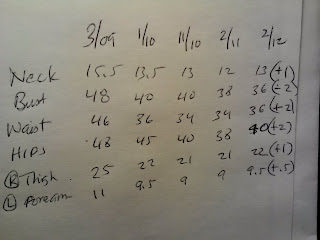 3/09 1/10 11/10 2/11 2/12
Neck 15.5 13.5 13 12 13 (+1)
Bust 48 40 40 38 36 (+2)
Waist 46 36 34 34 36 (+2)
Hips 48 45 40 38 40 (+2)
(R) Thigh 25 22 21 21 22 (+1)
(L) Forearm 11 9.5 9 9 9.5 (+.5)